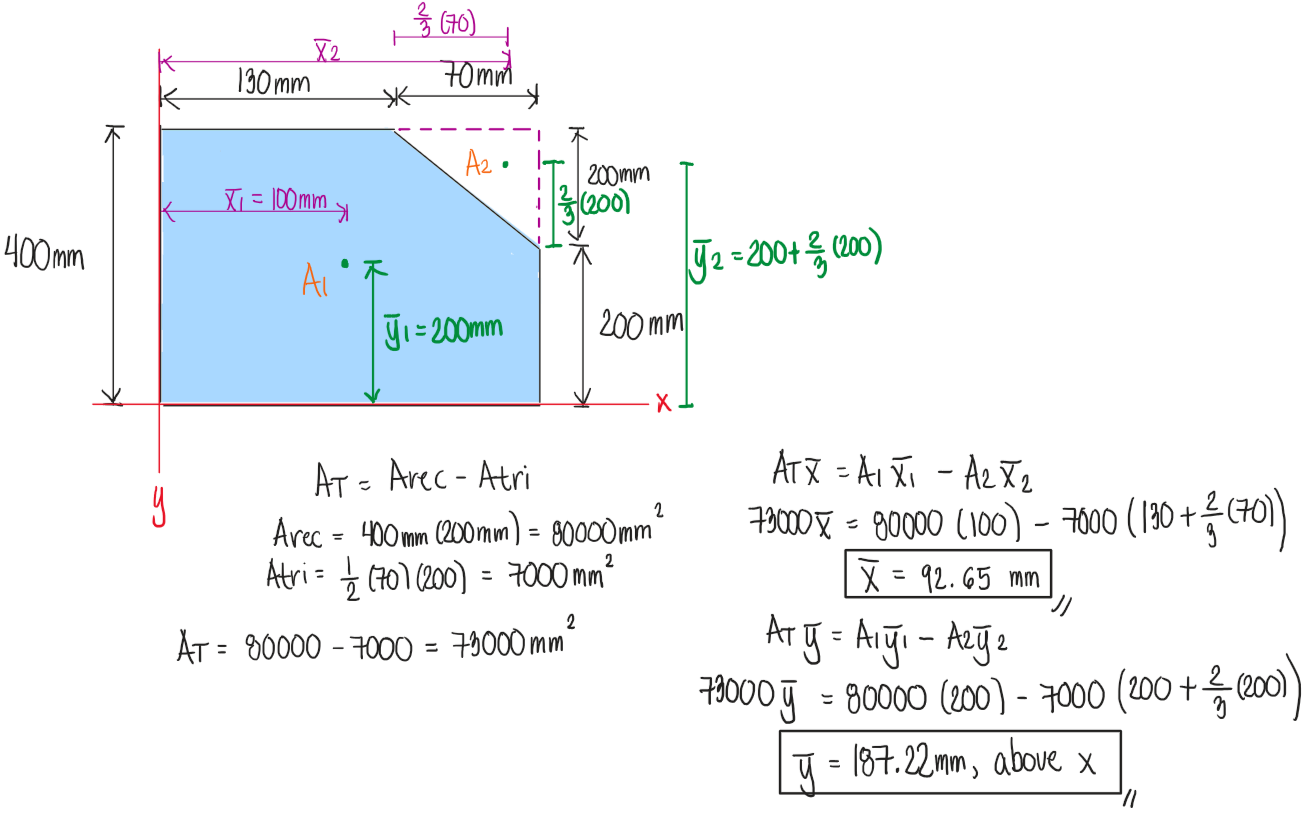 2/3 (70)
x̄2
130mm
70mm
A2
200mm
2/3 (200)
x̄1 = 100mm
400mm
ȳ2 = 200+2/3 (200)
A1
ȳ1 = 200mm
200mm
x
y
AT = Arec - Atri
Arec = 400mm (200mm) = 80000mm²
Atri = 1/2 (70)(200) = 7000mm²
AT = 80000 - 7000 = 73000mm²
AT x̄ = A1 x̄1 - A2 x̄2
73000x̄ = 80000 (100) - 7000 (130 + 2/3 (70))
x̄ = 92.65 mm
AT ȳ = A1ȳ1 - A2ȳ2
73000ȳ = 80000 (200) - 7000 (200 + 2/3 (200))
ȳ = 187.22mm, above x